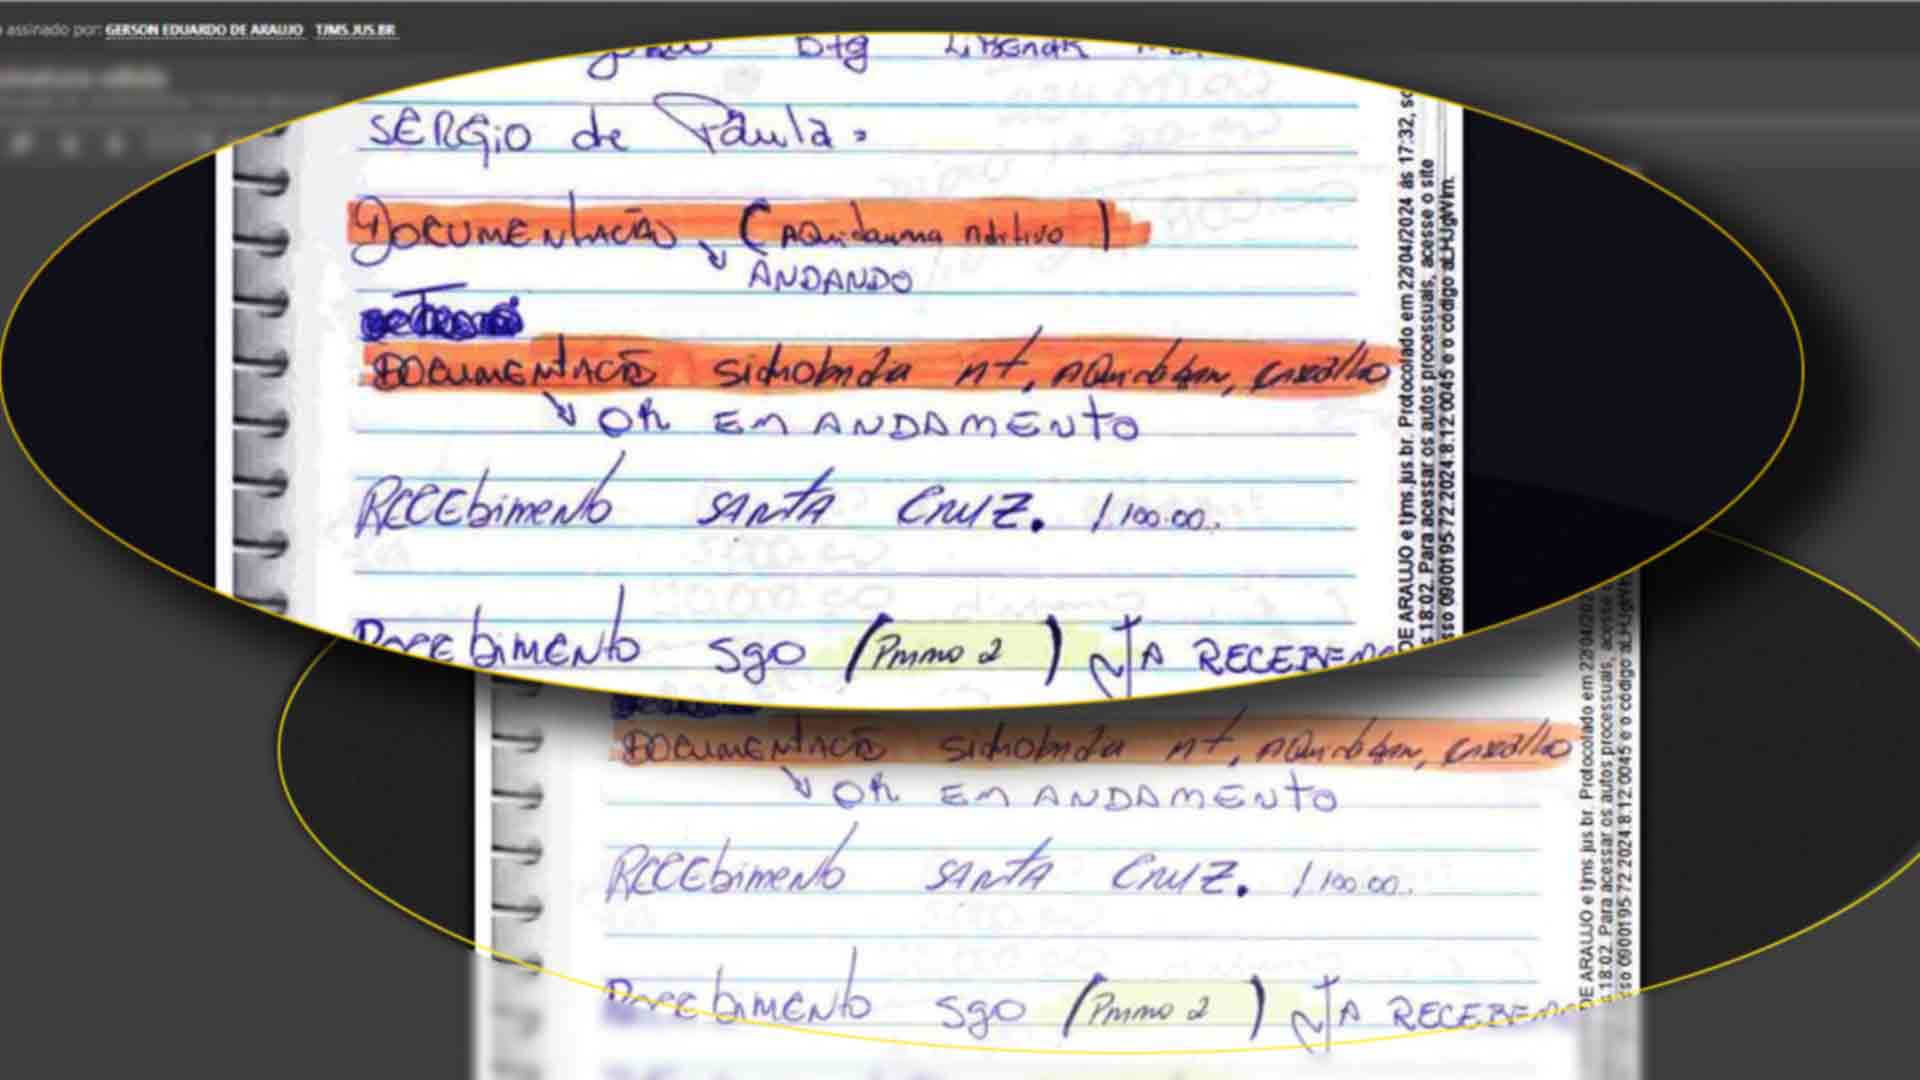 assinado por: GERSON EDUARDO DE ARAUJO TJMS.JUS.BR
SERGIO de Paula
DOCUMENtAÇÃO (AQuidauana Aditivo)
ANDANDO
DOCUMENtAÇÃO sidrolandia
OK EM ANDAMENtO
RECEbimeNto SANtA CRUZ. 1100.00.
RECEbimENto sgo (Pmmo 2) A RECEBE
DE ARAUJO e tjms.jus.br. Protocolado em 22/04/2024 às 17:32, so
s 18.02. Para acessar os autos processuais, acesse o site
sso 0900195-72.2024.8.12.0045 e o código aLHUgWIm.
DOCUMENtAÇÃO sidrolandia
OK EM ANDAMENtO
RECEbimeNto SANtA CRUZ. 1100.00.
RECEbimENto sgo (Pmmo 2) A RECEBE
DE ARAUJO e tjms.jus.br. Protocolado em 22/04/202
s 18.02. Para acessar os autos processuais, acesse
sso 0900195-72.2024.8.12.0045 e o código